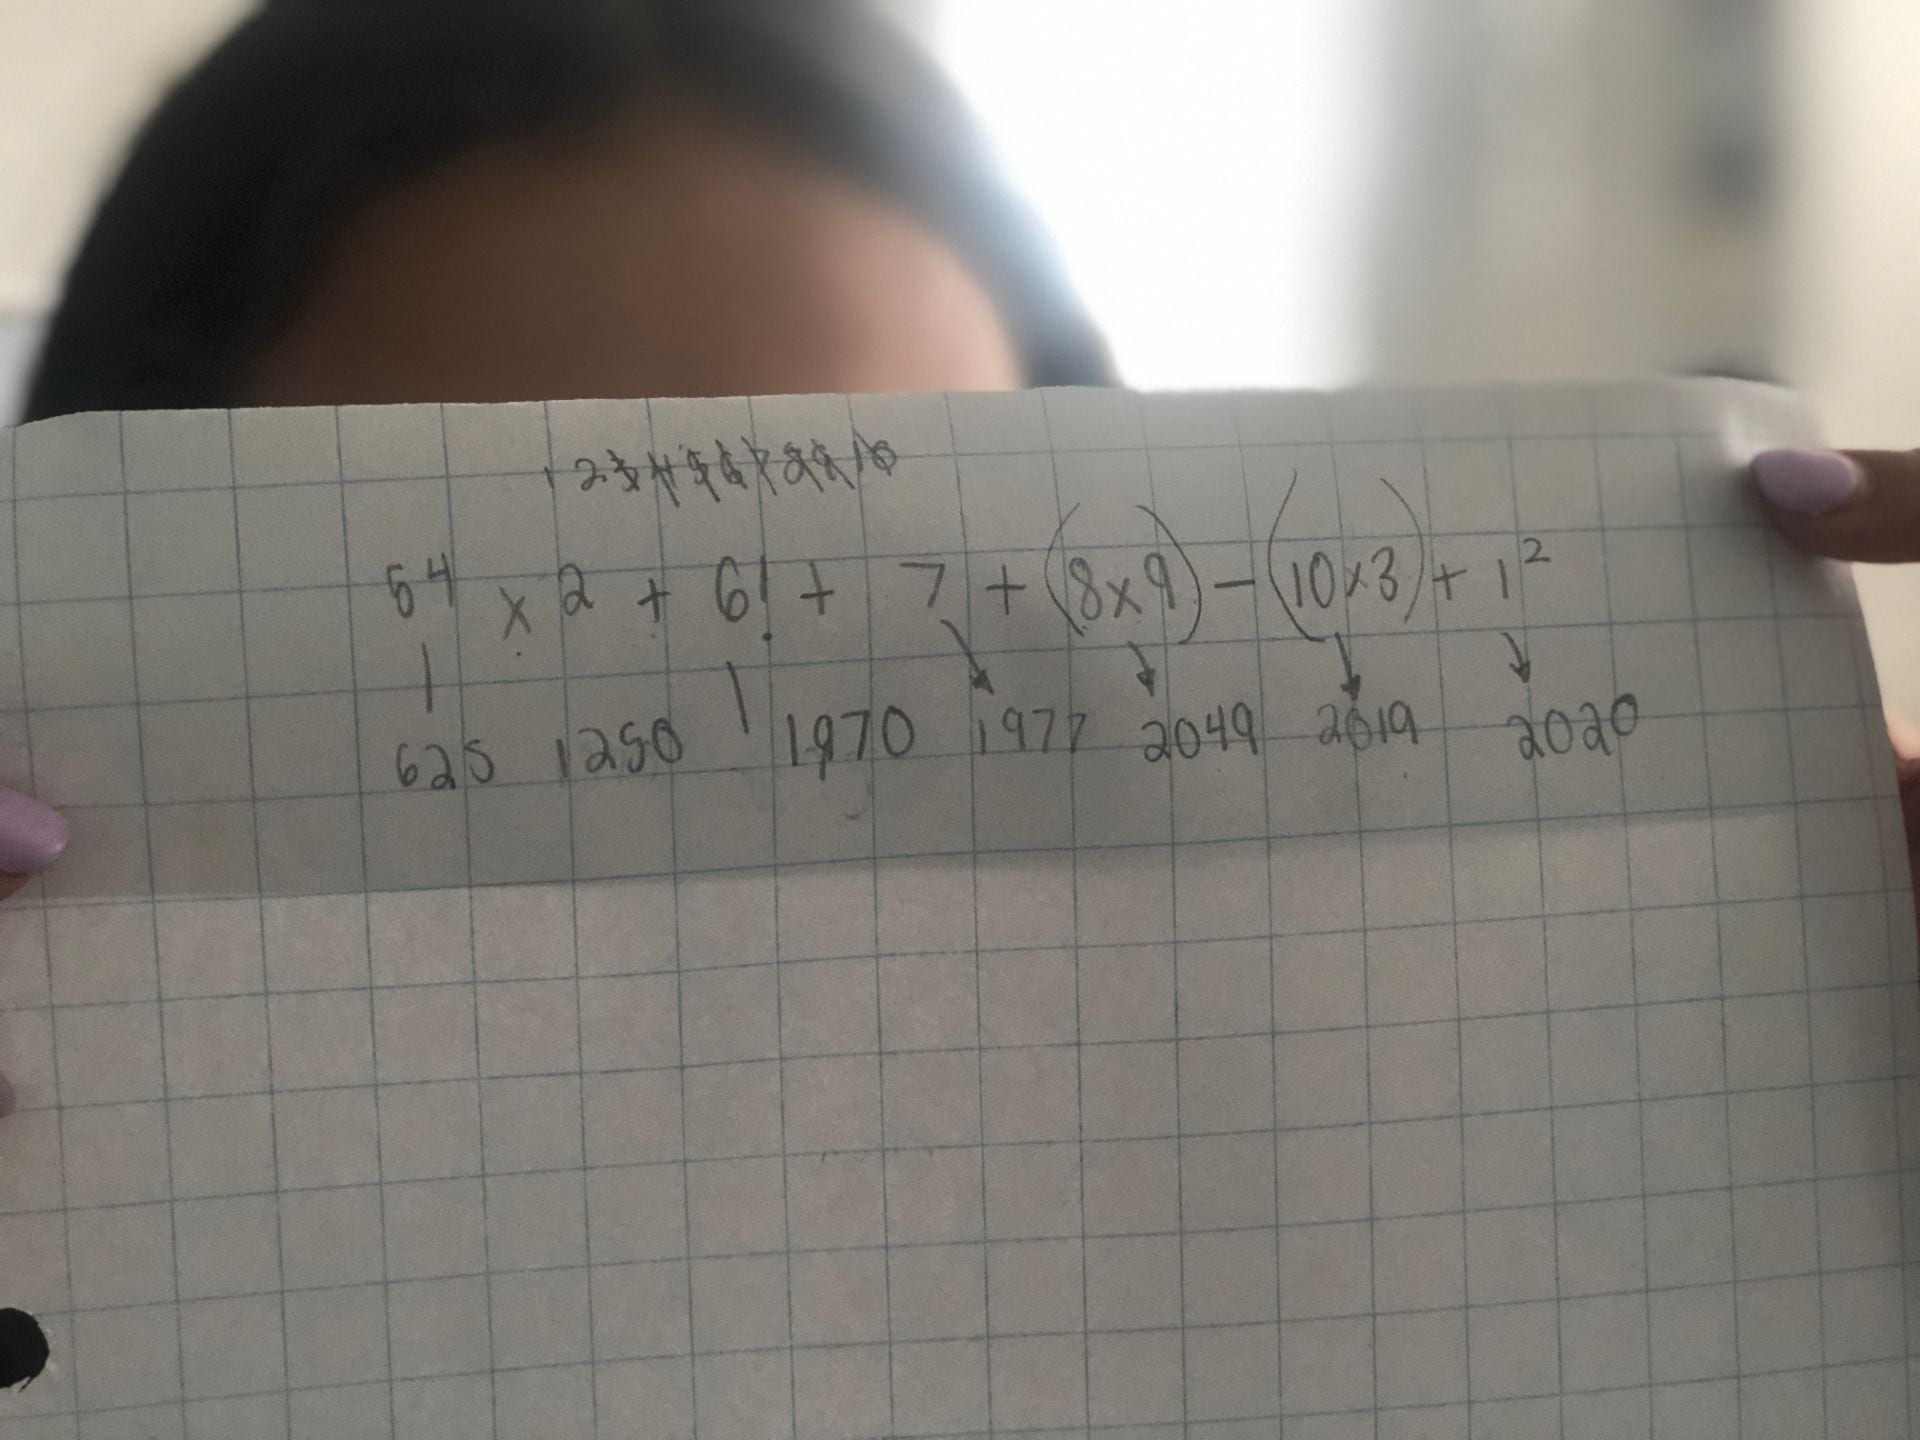 1 2 3 4 5 6 7 8 9 10
5⁴ x 2 + 6! + 7 + (8x9) - (10x3) + 1²
625 1250 1970 1977 2049 2019 2020